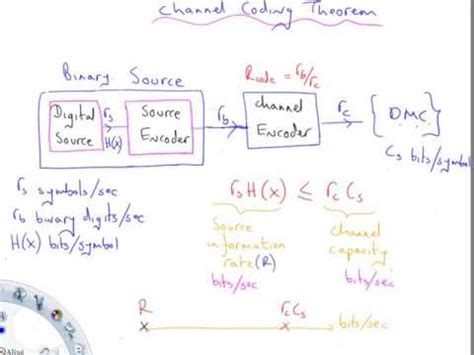 Channel Coding Theorem
Binary Source
Rcode = rb/rc
Digital Source
rs
H(x)
Source Encoder
rb
channel Encoder
rc
{DMC}
Cs bits/symbol
rs symbols/sec
rb binary digits/sec
H(x) bits/symbol
rs H(x) ≤ rc Cs
Source information rate (R)
bits/sec
channel capacity
bits/sec
R
rc Cs
bits/sec